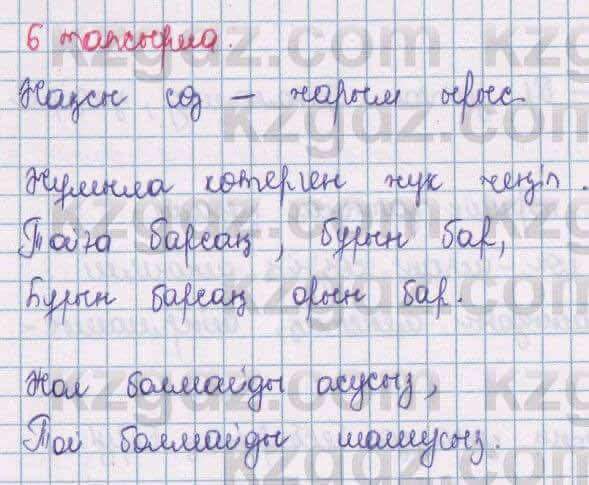 6 тапсырма.
Жақсы сөз – жарым ырыс
Жұмыла көтерген жүк жеңіл.
Тойға барсаң, бұрын бар,
Бұрын барсаң орын бар.
Жол болмайды асусыз,
Той болмайды шашусыз.